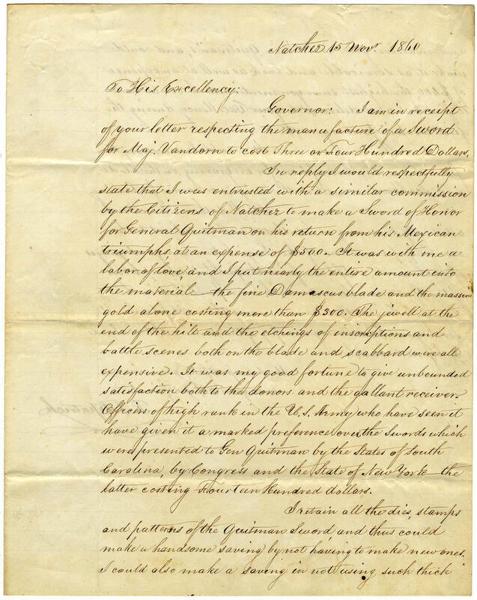 Natchez 15 Novr. 1860
To His Excellency:
Governor: I am in receipt
of your letter respecting the manufacture of a Sword
for Maj. Vandorn to cost Three or Four Hundred Dollars.
In reply I would respectfully
state that I was entrusted with a similar commission
by the Citizens of Natchez to make a Sword of Honor
for General Quitman on his return from his Mexican
triumphs, at an expense of $500. It was with me a
labor of love and I put nearly the entire amount into
the material— the fine Damascus blade and the massive
gold alone costing more than $300. The jewell at the
end of the hilt and the etchings of inscriptions and
battle scenes both on the blade and scabbard were all
expensive. It was my good fortune to give unbounded
satisfaction both to the donors and the gallant receiver.
Officers of high rank in the U.S. Army who have seen it
have given it a marked preference over the Swords which
were presented to Gen Quitman by the States of South
Carolina, by Congress and the State of New York— the
latter costing Fourteen Hundred dollars.
I retain all the dies, stamps
and patterns of the Quitman Sword and thus could
make a handsome saving by not having to make new ones.
I could also make a saving in not using such thick